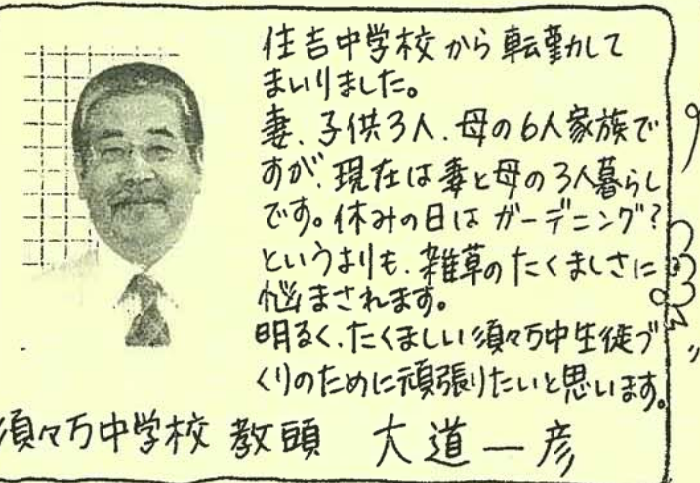 住吉中学校から転勤して
まいりました。
妻、子供3人、母の6人家族で
すが、現在は妻と母の3人暮らし
です。休みの日はガーデニング?
というよりも、雑草のたくましさに
悩まされます。
明るく、たくましい須々万中生徒づ
くりのために頑張りたいと思います。
須々万中学校 教頭 大道一彦